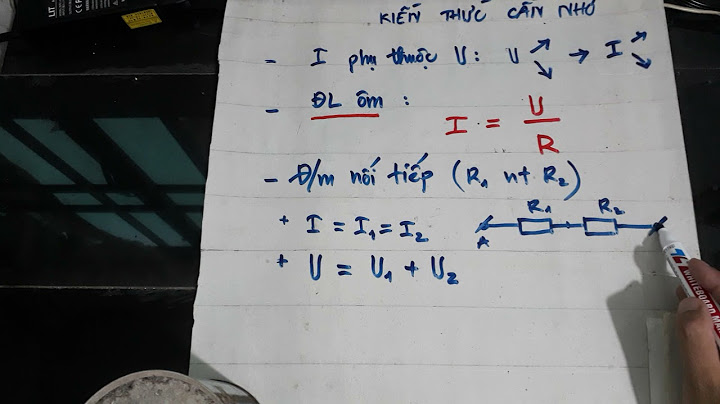 KIẾN THỨC CẦN NHỚ
- I phụ thuộc U: U ↗ ↘ → I ↗ ↘
- ĐL ôm : I = U / R
- Đ/m nối tiếp (R1 nt R2)
+ I = I1 = I2
R1 R2
A
+ U = U1 + U2
WHITEBOARD MA